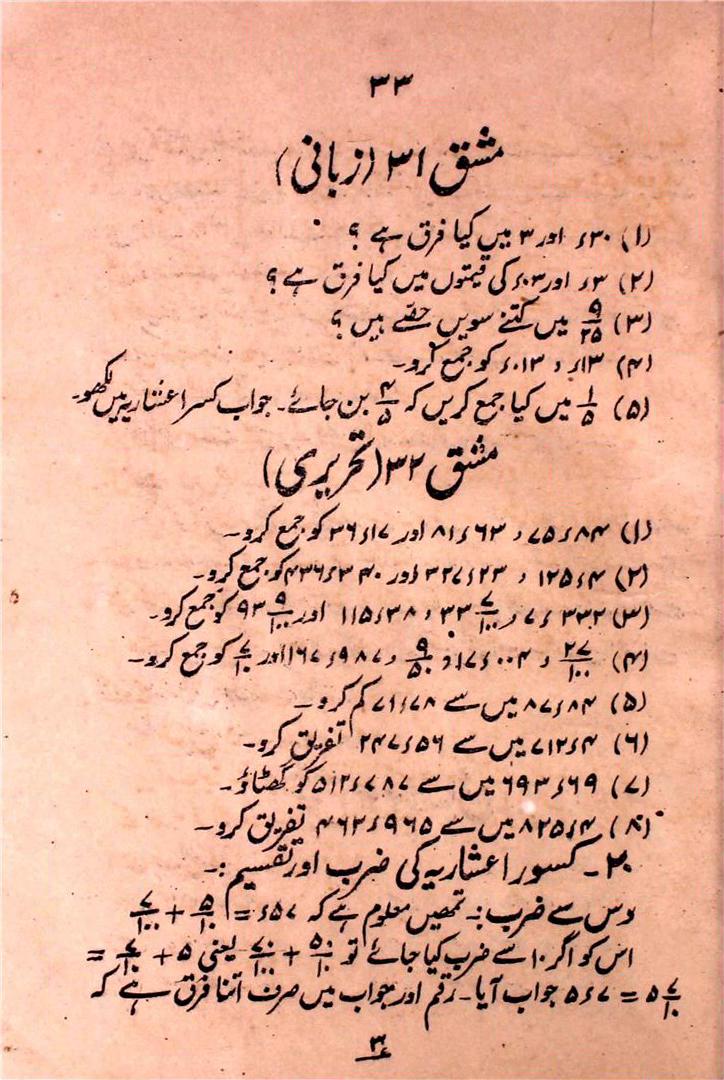 ۳۳
مشق ۳۱ (زبانی)
(۱) ۳۰ء اور ۳ میں کیا فرق ہے ؟
(۲) ۳ء اور ۰۳ء کی قیمتوں میں کیا فرق ہے ؟
(۳) ۹/۲۵ میں کتنے سویں حصّے ہیں ؟
(۴) ۱۳ء ، ۰۱۳ء کو جمع کرو۔
(۵) ۱/۵ میں کیا جمع کریں کہ ۴/۵ بن جائے۔ جواب کسر اعشاریہ میں لکھو۔
مشق ۳۲ (تحریری)
(۱) ۷۵ء۸۴ ، ۸۱ء۶۳ اور ۳۶ء۱۷ کو جمع کرو۔
(۲) ۱۲۵ء۴ ، ۳۲۷ء۲۳ اور ۴۳۶ء۳۴۰ کو جمع کرو۔
(۳) ۷ء۳۳۲ ، ۳۳ ۷/۱۰۰ ، ۱۱۵ء۳۸ اور ۹۳ ۹/۱۰۰ کو جمع کرو۔
(۴) ۲۷/۱۰۰ ، ۱۷ء۰۰۴ ، ۹/۵۰ ، ۱۶۷ء۹۸۷ اور ۷/۱۰ کو جمع کرو۔
(۵) ۸۷ء۸۴ میں سے ۷۱ء۷۸ کم کرو۔
(۶) ۷۱۲ء۴ میں سے ۲۴۷ء۵۶ تفریق کرو۔
(۷) ۶۹۳ء۶۹ میں سے ۵۱۲ء۷۸۷ کو گھٹاؤ۔
(۸) ۸۲۵ء۴ میں سے ۴۶۲ء۹۶۵ تفریق کرو۔
۲۰۔ کسور اعشاریہ کی ضرب اور تقسیم :۔
دس سے ضرب :۔ تمھیں معلوم ہے کہ ۵۷ء = ۵/۱۰ + ۷/۱۰۰
اس کو اگر ۱۰ سے ضرب کیا جائے تو ۵۰/۱۰ + ۷۰/۱۰۰ یعنی ۵ + ۷/۱۰ =
۵ ۷/۱۰ = ۵ء۷ جواب آیا۔ رقم اور جواب میں صرف اتنا فرق ہے کہ
۳